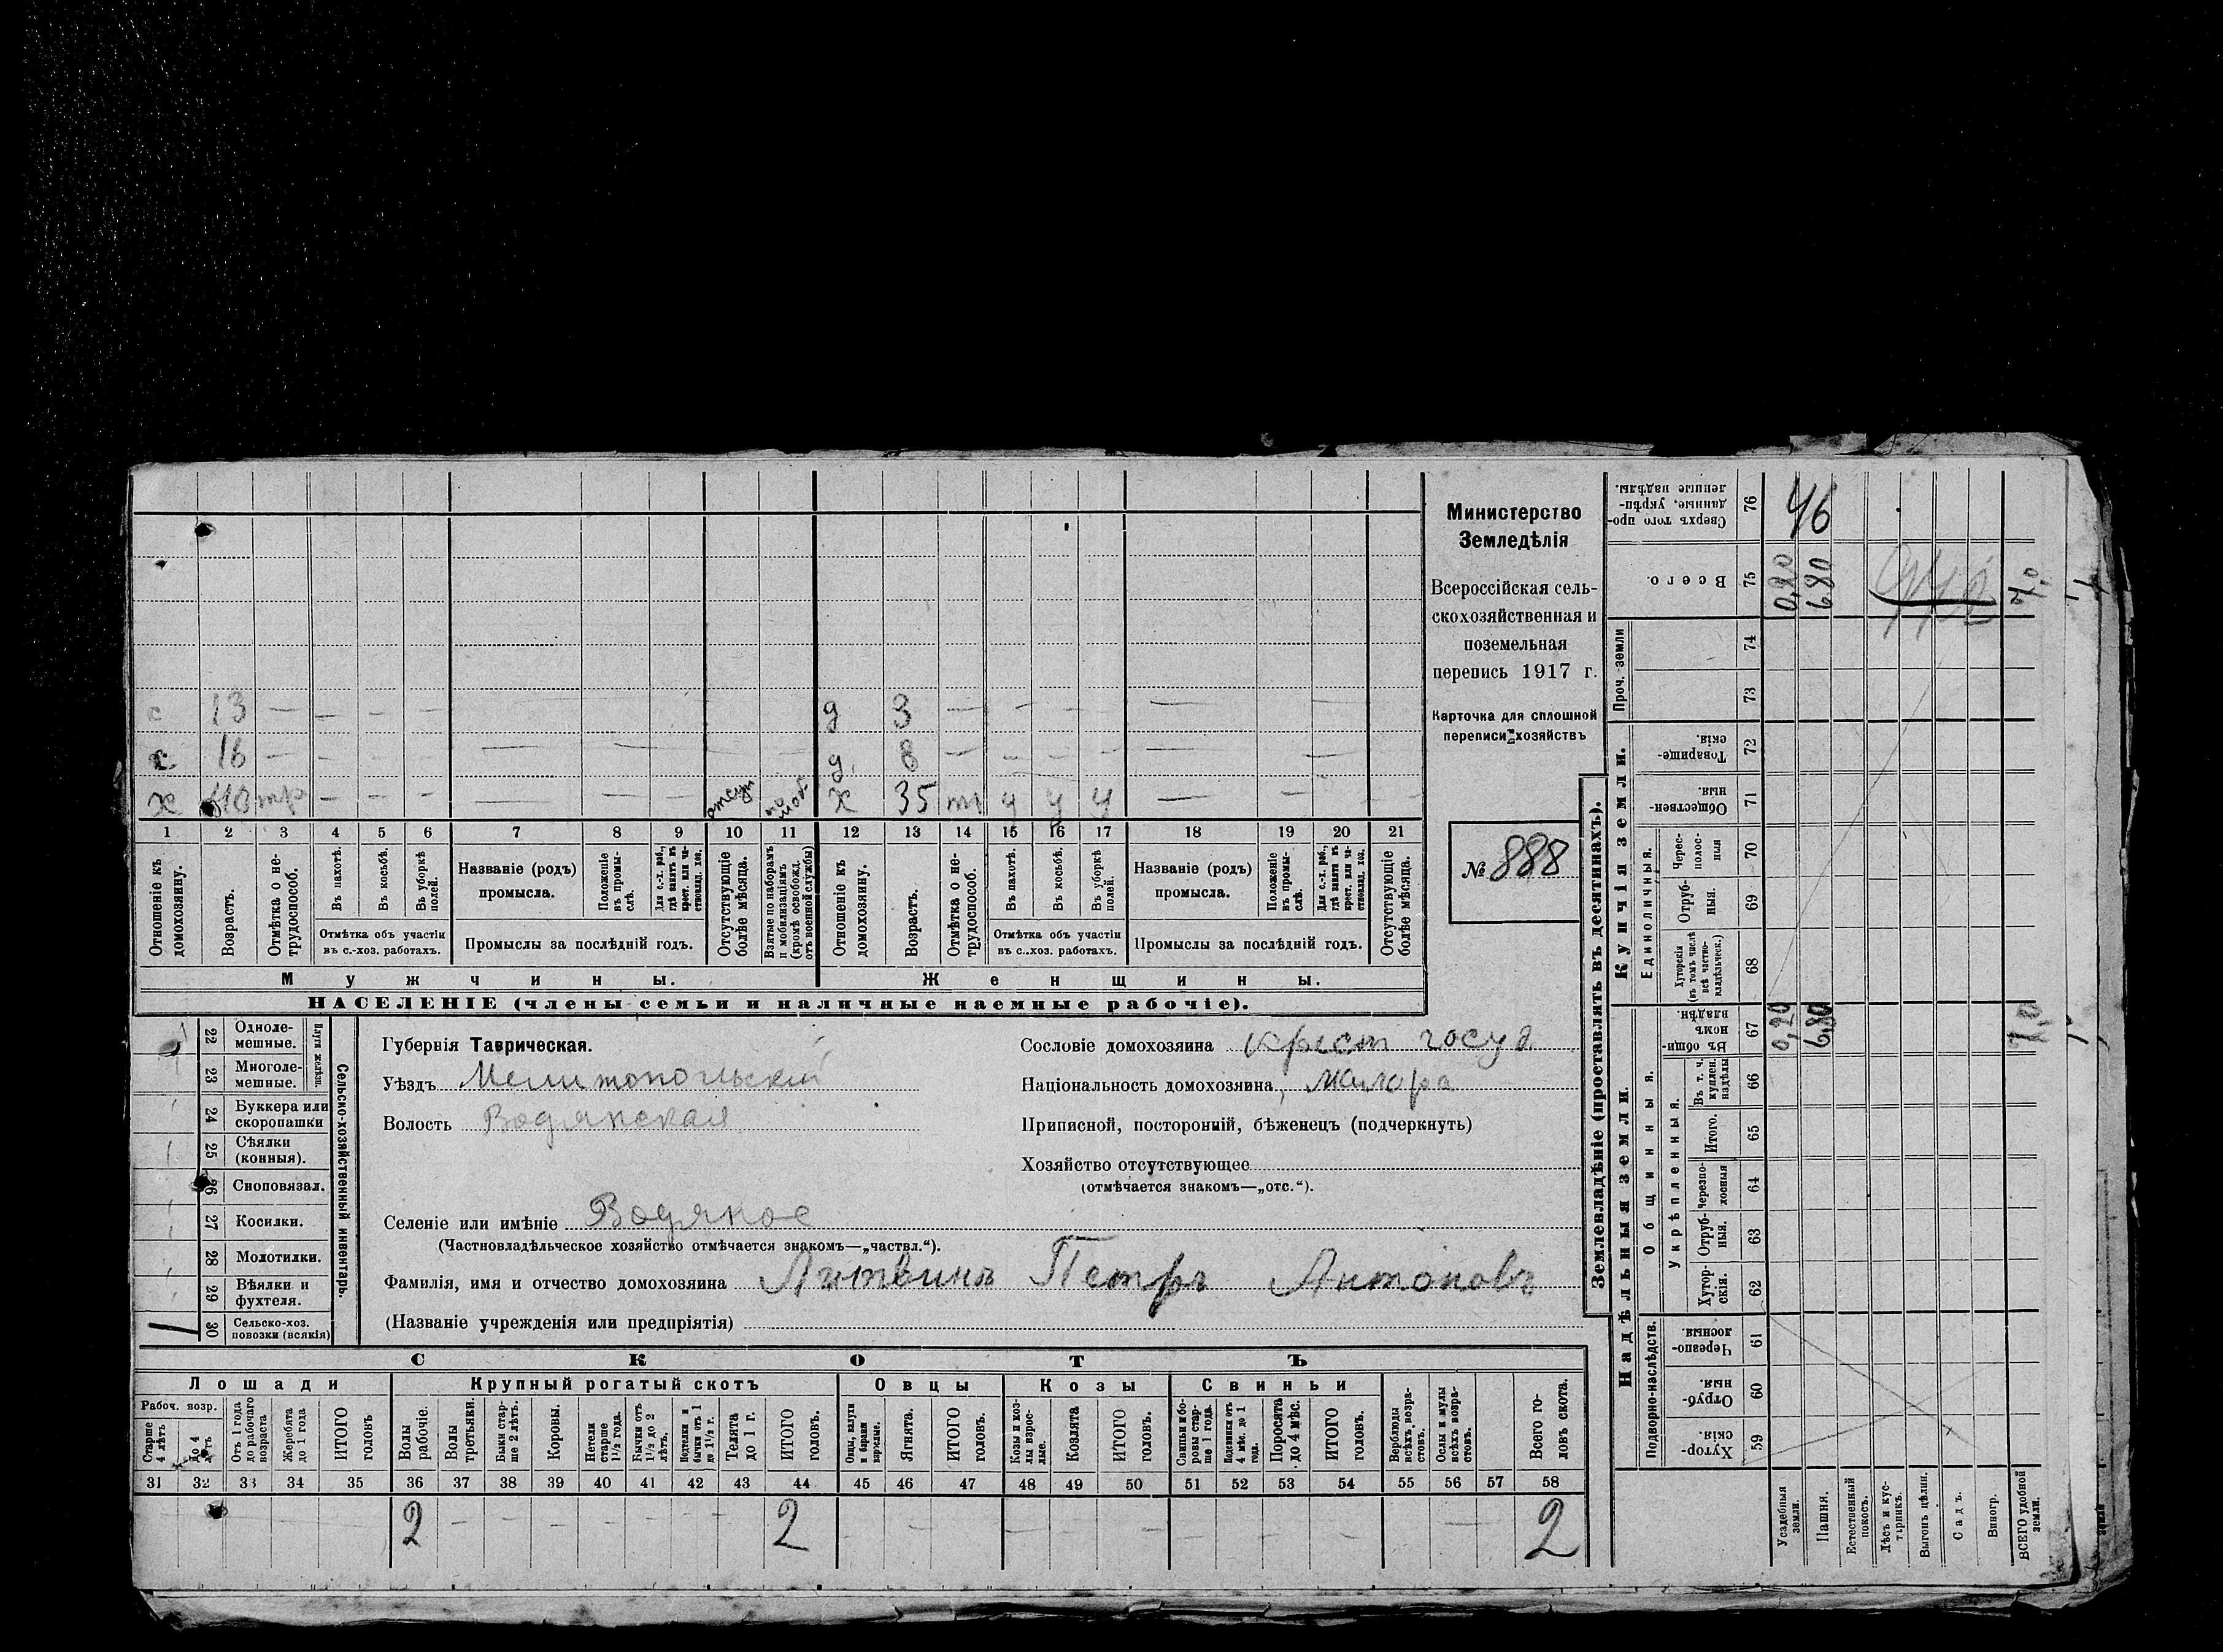 с 13 — — — — — — — — — д 3 — — — — — — —
с 16 — — — — — — д. 8 — — — — — —
х 40 тр — — — — — — отсут по моб. х 35 т у у у — — — —
1 2 3 4 5 6 7 8 9 10 11 12 13 14 15 16 17 18 19 20 21
Отношеніе къ домохозяину.
Возрастъ.
Отмѣтка о не-трудоспособ.
Въ пахотѣ.
Въ косьбѣ.
Въ уборкѣ полей.
Отмѣтка объ участіи
въ с.-хоз. работахъ.
Названіе (родъ)
промысла.
Положеніе въ промы-слѣ.
Для с.-х. раб., гдѣ занятъ въ крест. или ча-стновлад. хоз.
Промыслы за послѣдній годъ.
Отсутствующіе болѣе мѣсяца.
Взятые по наборамъ и мобилизаціямъ (кромѣ освобожд. отъ военной службы)
Отношеніе къ домохозяину.
Возрастъ.
Отмѣтка о не-трудоспособ.
Въ пахотѣ.
Въ косьбѣ.
Въ уборкѣ полей.
Отмѣтка объ участіи
въ с.-хоз. работахъ.
Названіе (родъ)
промысла.
Положеніе въ промы-слѣ.
Для с.-х. раб., гдѣ занятъ въ крест. или ча-стновлад. хоз.
Промыслы за послѣдній годъ.
Отсутствующіе болѣе мѣсяца.
Мужчины. Женщины.
НАСЕЛЕНІЕ (члены семьи и наличные наемные рабочіе).
Министерство
Земледѣлія
Всероссійская сель-
скохозяйственная и
поземельная
перепись 1917 г.
Карточка для сплошной
переписи хозяйствъ
№ 888
Сельско-хозяйственный инвентарь.
Плуги желѣзн.
22 Одноле-
мешные.
23 Многоле-
мешные.
24 Буккера или
скоропашки
25 Сѣялки
(конныя).
26 Сноповязал.
27 Косилки.
28 Молотилки.
29 Вѣялки и
фухтеля.
30 Сельско-хоз.
повозки (всякія)
1
Губернія Таврическая.
Уѣздъ Мелитопольскій
Волость Водянская
Селеніе или имѣніе Водяное
(Частновладѣльческое хозяйство отмѣчается знакомъ—„частвл.“).
Фамилія, имя и отчество домохозяина Литвинъ Петръ Антоновъ
(Названіе учрежденія или предпріятія)
Сословіе домохозяина крест госуд
Національность домохозяина, малора
Приписной, посторонній, бѣженецъ (подчеркнуть)
Хозяйство отсутствующее
(отмѣчается знакомъ—„отс.“).
СКОТЪ
Лошади Крупный рогатый скотъ Овцы Козы Свиньи
Рабоч. возр.
Старше 4 лѣтъ
До 4 лѣтъ
Отъ 1 года до рабочаго возраста
Жеребята до 1 года
ИТОГО головъ
Волы рабочіе.
Волы третьяки.
Быки стар-ше 2 лѣтъ.
Коровы.
Нетели старше 1½ года.
Бычки отъ 1½ до 2 лѣтъ.
Нетелки и бычки отъ 1 до 1½ г.
Телята до 1 г.
ИТОГО головъ.
Овцы, валухи и бараны взрослые.
Ягнята.
ИТОГО головъ.
Козы и коз-лы взрос-лые.
Козлята
ИТОГО головъ.
Свиньи и бо-ровы стар-ше 1 года.
Подсвинки отъ 4 мѣс. до 1 года.
Поросята до 4 мѣс.
ИТОГО головъ.
Верблюды всѣхъ возра-стовъ.
Ослы и мулы всѣхъ возра-стовъ.
Всего го-ловъ скота.
31 32 33 34 35 36 37 38 39 40 41 42 43 44 45 46 47 48 49 50 51 52 53 54 55 56 57 58
2 — — — — — — — 2 — — — — — — — — — — — — 2
Землевладѣніе (проставлять въ десятинахъ).
Надѣльныя земли.
Купчія земли.
Проч. земли
Подворно-наслѣдств.
Общинныя.
Укрѣпленныя.
Единоличныя.
Хутор-скія. 59
Отруб-ныя. 60
Черезпо-лосныя. 61
Хутор-скія. 62
Отруб-ныя. 63
Черезпо-лосныя 64
Итого. 65
Въ т. ч. куплен. надѣлы 66
Въ общи-номъ владѣн. 67
Хуторскія (въ томъ числѣ всѣ частно-владѣльческ.) 68
Отруб-ныя. 69
Черес-полос-ныя 70
Обществен-ныя. 71
Товарище-скія. 72
73
74
Всего. 75
Сверхъ того про-данные, укрѣп-ленные надѣлы. 76
Усадебныя земли. 0,20 0,20
Пашня. 6,80 6,80
46
Естественный покосъ.
Лѣсъ и кус-тарникъ.
Выгонъ цѣлин.
Садъ.
Виногр.
ВСЕГО удобной земли. 7,0 7,0